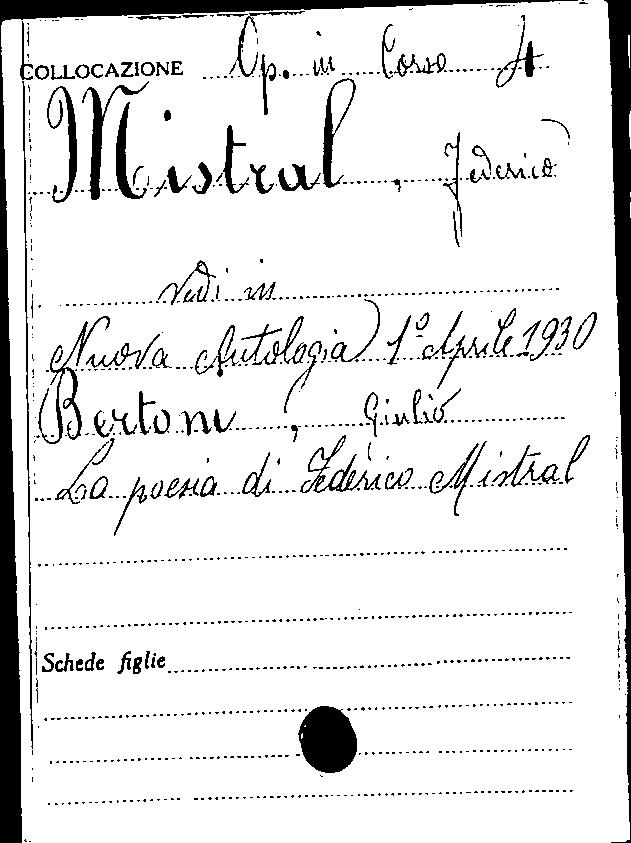 COLLOCAZIONE Op. in Corso 4
Mistral, Federico
vedi in
Nuova Antologia 1º Aprile 1930
Bertoni, Giulio
La poesia di Federico Mistral
Schede figlie